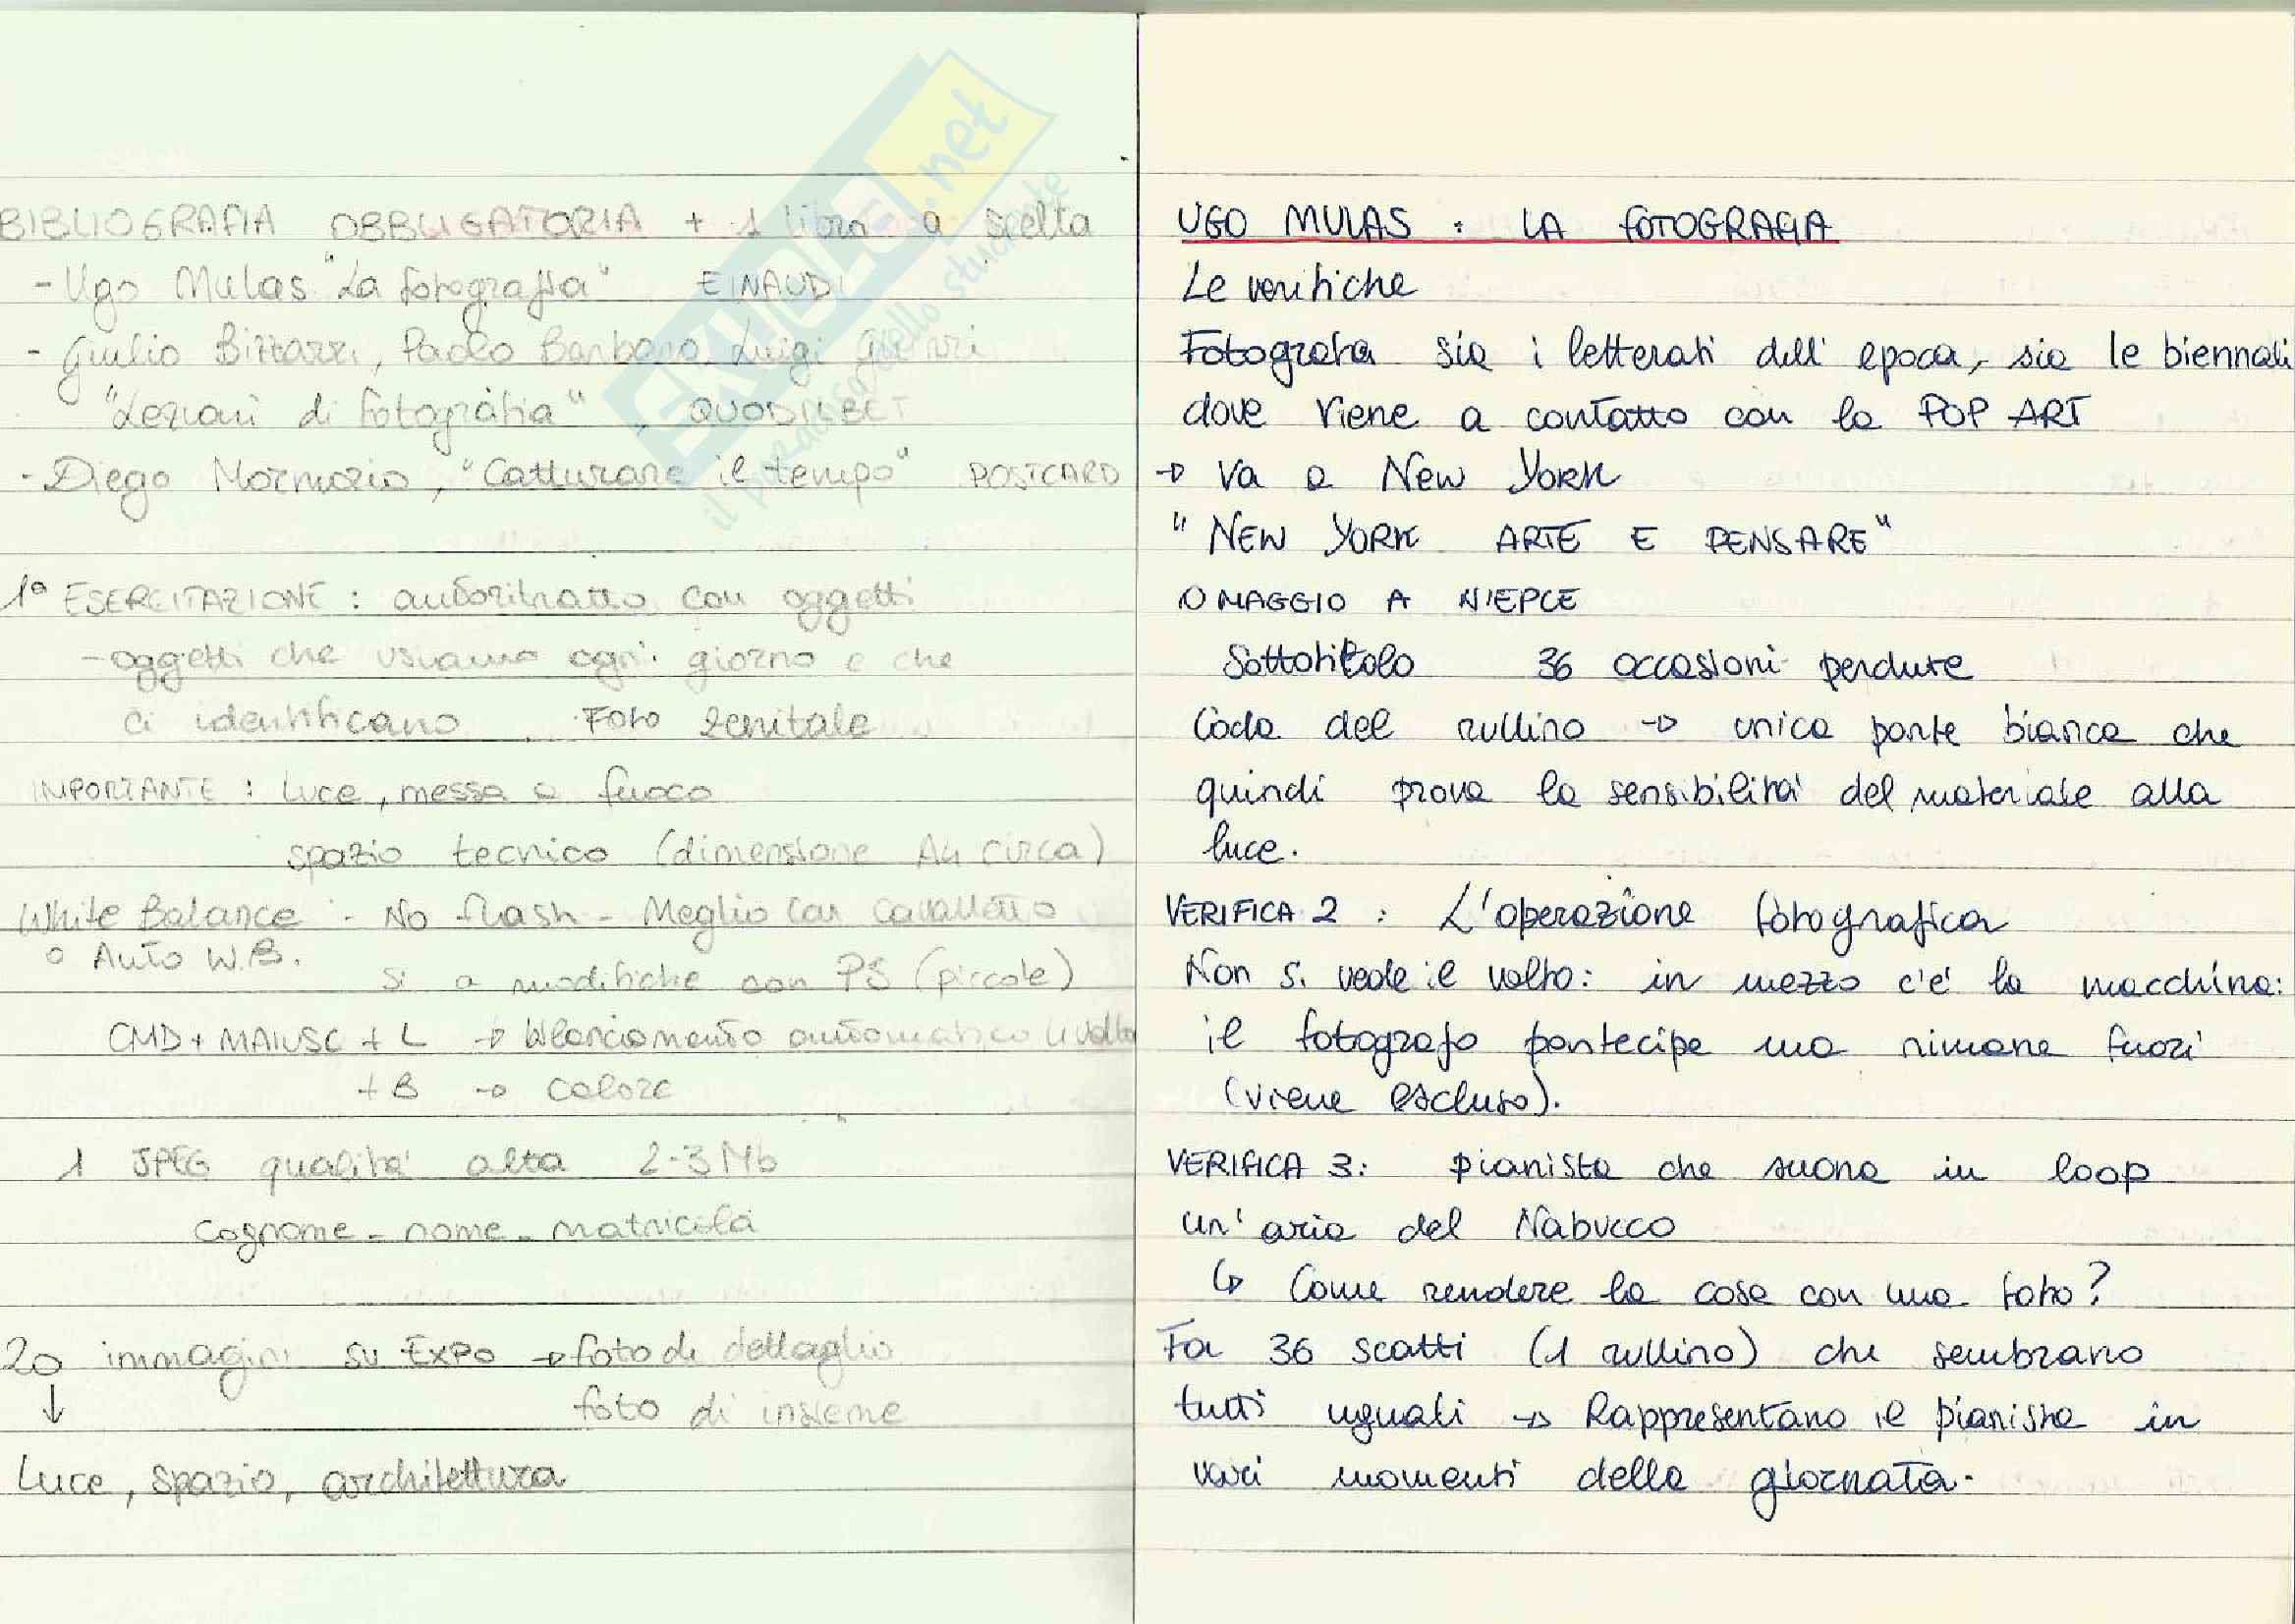 BIBLIOGRAFIA OBBLIGATORIA + 1 libro a scelta
- Ugo Mulas "La fotografia" EINAUDI
- Giulio Bizzarri, Paolo Barbaro, Luigi Ghirri
"Lezioni di fotografia", QUODLIBET
- Diego Mormorio, "Catturare il tempo" POSTCARD
1ª ESERCITAZIONE : autoritratto con oggetti
- oggetti che usiamo ogni giorno e che
ci identificano. Foto zenitale
IMPORTANTE : luce, messa a fuoco
spazio tecnico (dimensione A4 circa)
White Balance - No flash - Meglio con cavalletto
o Auto W.B.
Si a modifiche con PS (piccole)
CMD + MAIUSC + L → bilanciamento automatico livelli
+ B → colore
1 JPEG qualità alta 2-3 Mb
Cognome - nome - matricola
20 immagini su EXPO → foto di dettaglio
↓ foto di insieme
Luce, spazio, architettura
UGO MULAS : LA FOTOGRAFIA
Le verifiche
Fotografa sia i letterati dell'epoca, sia le biennali
dove viene a contatto con la POP ART
→ Va a New York
"NEW YORK ARTE E PENSARE"
OMAGGIO A NIEPCE
Sottotitolo 36 occasioni perdute
Coda del rullino → unica parte bianca che
quindi prova la sensibilità del materiale alla
luce.
VERIFICA 2 : L'operazione fotografica
Non si vede il volto: in mezzo c'è la macchina:
il fotografo partecipa ma rimane fuori
(viene escluso).
VERIFICA 3: pianista che suona in loop
un'aria del Nabucco
↳ Come rendere la cosa con una foto?
Fa 36 scatti (1 rullino) che sembrano
tutti uguali → Rappresentano il pianista in
vari momenti della giornata.
SKUOLA.net
il paradiso dello studente